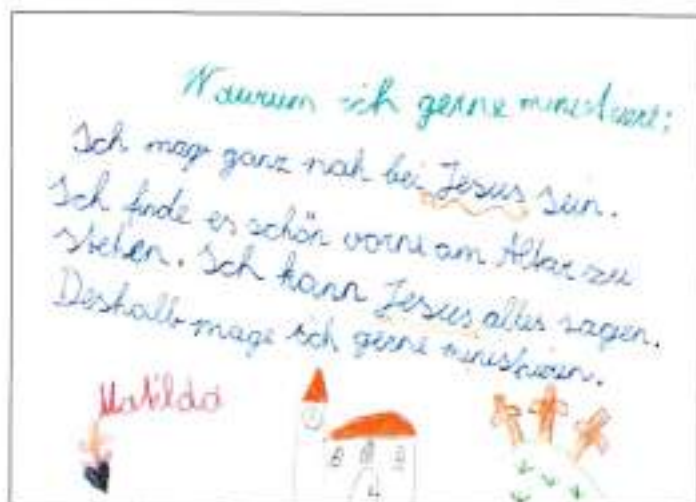 Warum ich gerne ministriere:
Ich mag ganz nah bei Jesus sein.
Ich finde es schön vorne am Altar zu
stehen. Ich kann Jesus alles sagen.
Deshalb mage ich gerne ministrieren.
Matilda